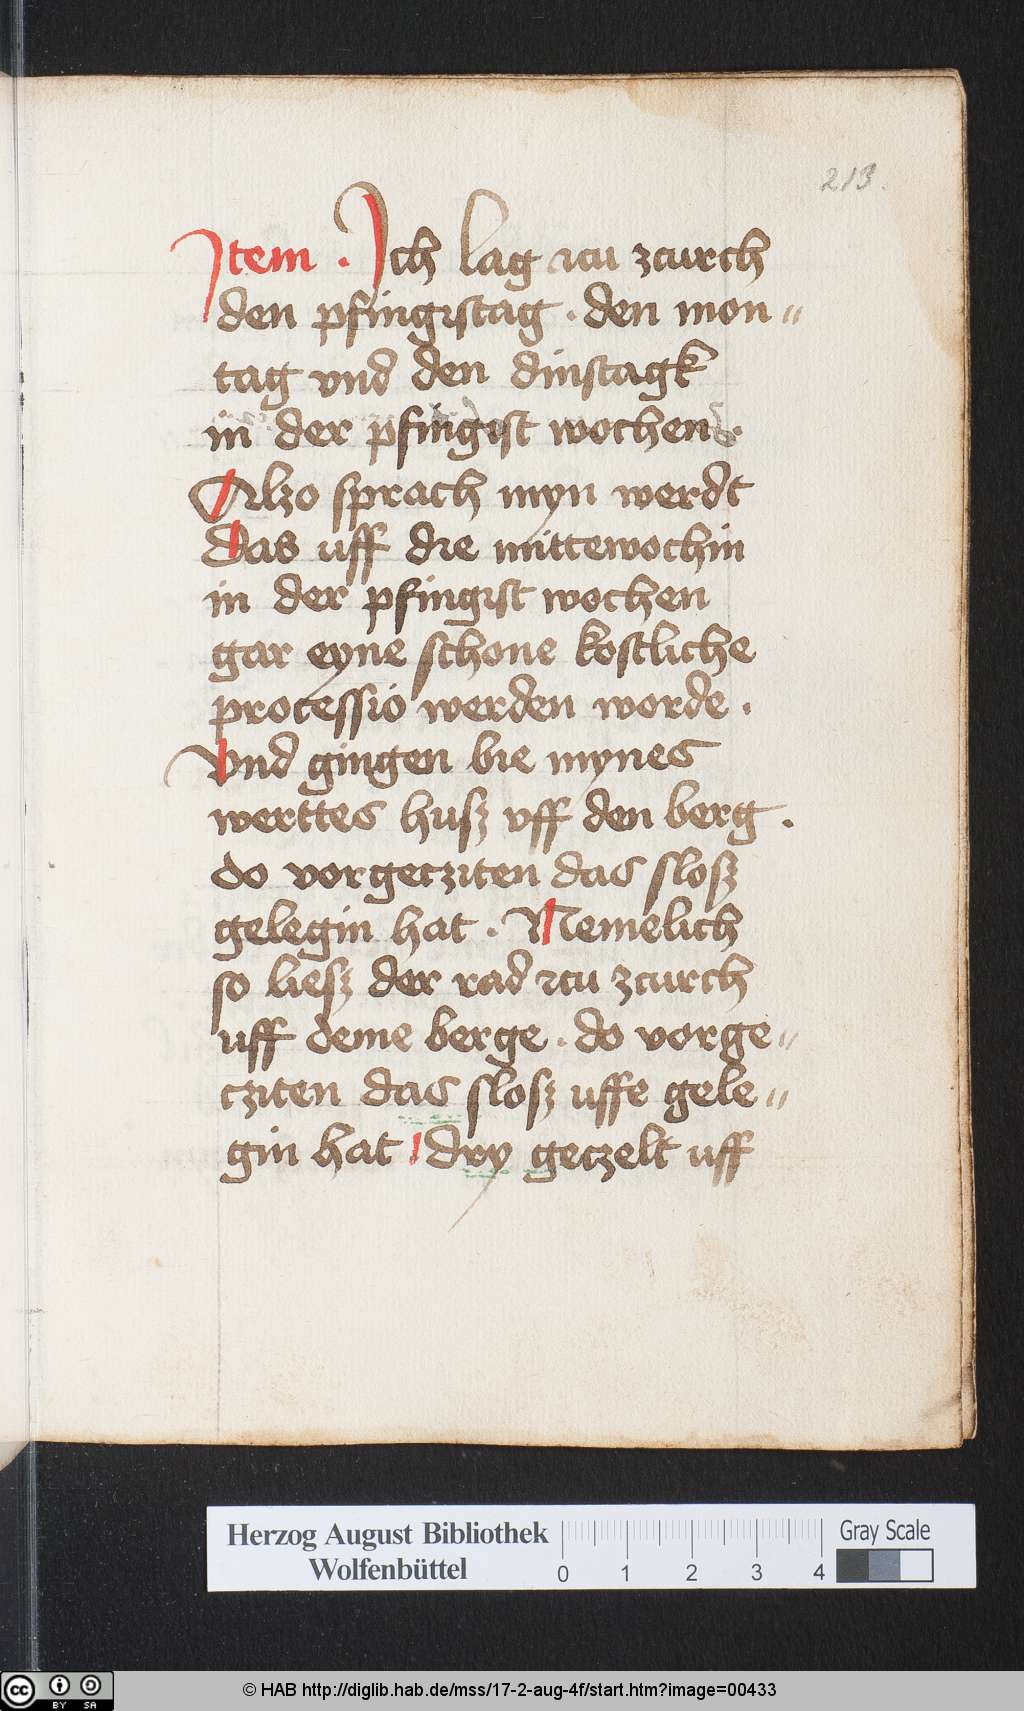 213.
Item . Ich lag zcu zcurch
den pfingistag . den mon=
tag vnd den dinstagk
in der pfingist wochen .
Alzo sprach myn werdt
Das uff die mittewochin
in der pfingist wochen
gar eyne schone kostliche
processio werden worde .
Vnd gingen bie mynes
werttes husz vff den berg .
do vorgecziten das slosz
gelegin hat . Nemelich
so liesz der rad zcu zcurch
uff deme berge . do vorge=
cziten das slosz uffe gele=
gin hat dry geczelt uff
Herzog August Bibliothek
Wolfenbüttel
0 1 2 3 4
Gray Scale
cc BY SA
© HAB http://diglib.hab.de/mss/17-2-aug-4f/start.htm?image=00433